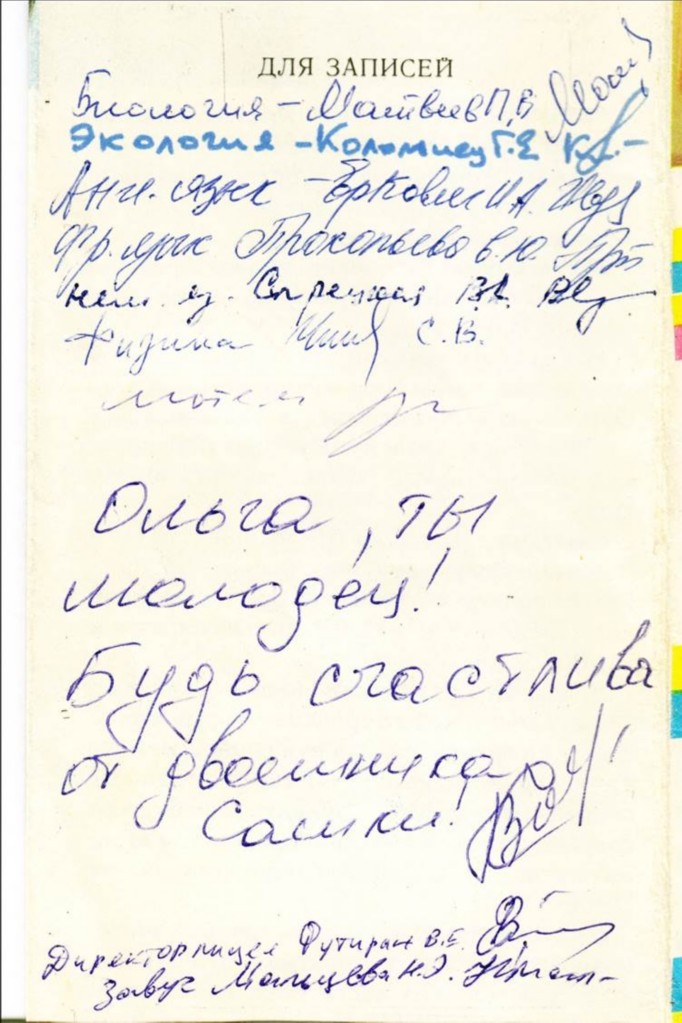 ДЛЯ ЗАПИСЕЙ
Биология - Матвеев П.В
Экология - Коломиец Г.Е
Англ. язык - Еркович И.А.
Фр. язык Прокопьева В.Ю.
нем. яз. Стрецкая В.А.
Физика С.В.
матем
Ольга, ты
молодец!
Будь счастлива
от двоешника
Сашки!
Директор лицея Футиран В.Е.
Завуч Мальцева Н.Э.